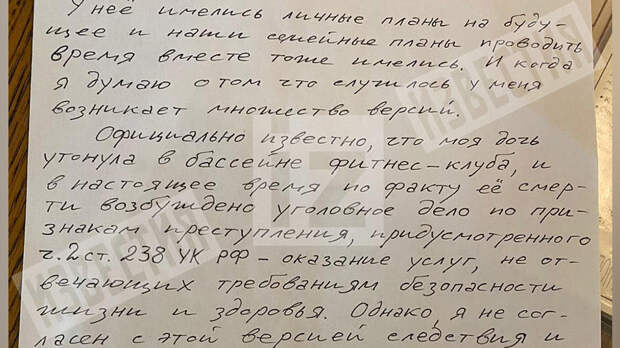 У неё имелись личные планы на буду-
щее и наши семейные планы проводить
время вместе тоже имелись. И когда
я думаю о том что случилось у меня
возникает множество версий.
Официально известно, что моя дочь
утонула в бассейне фитнес-клуба, и
в настоящее время по факту её смер-
ти возбуждено уголовное дело по при-
знакам преступления, придусмотренного
ч.2 ст. 238 УК РФ - оказание услуг, не от-
вечающих требованиям безопасности
жизни и здоровья. Однако, я не сог-
ласен с этой версией следствия и
ИЗВЕСТИЯ
IZ
ИЗВЕСТИЯ